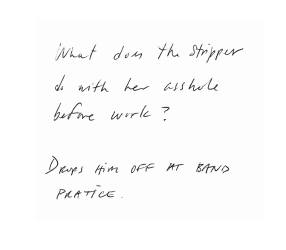 What does the stripper
do with her asshole
before work?
DROPS HIM OFF AT BAND
PRATICE.